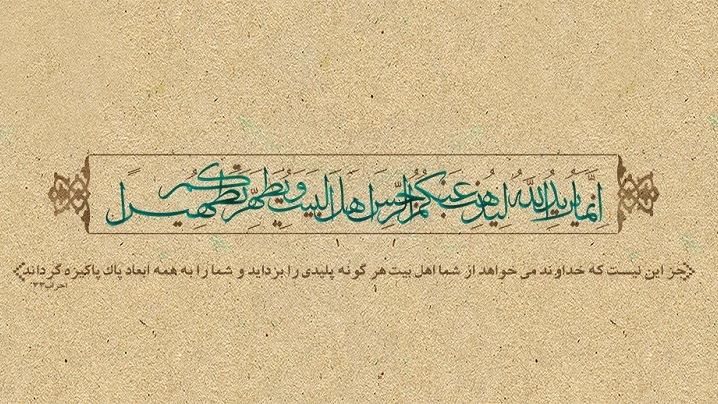 إنما يريد الله ليذهب عنكم الرجس اهل البيت و يطهركم تطهيرا
جز این نیست که خداوند می خواهد از شما اهل بیت هر گونه پلیدی را بزداید و شما را به همه ابعاد پاك پاکیزه گرداند
احزاب۳۳